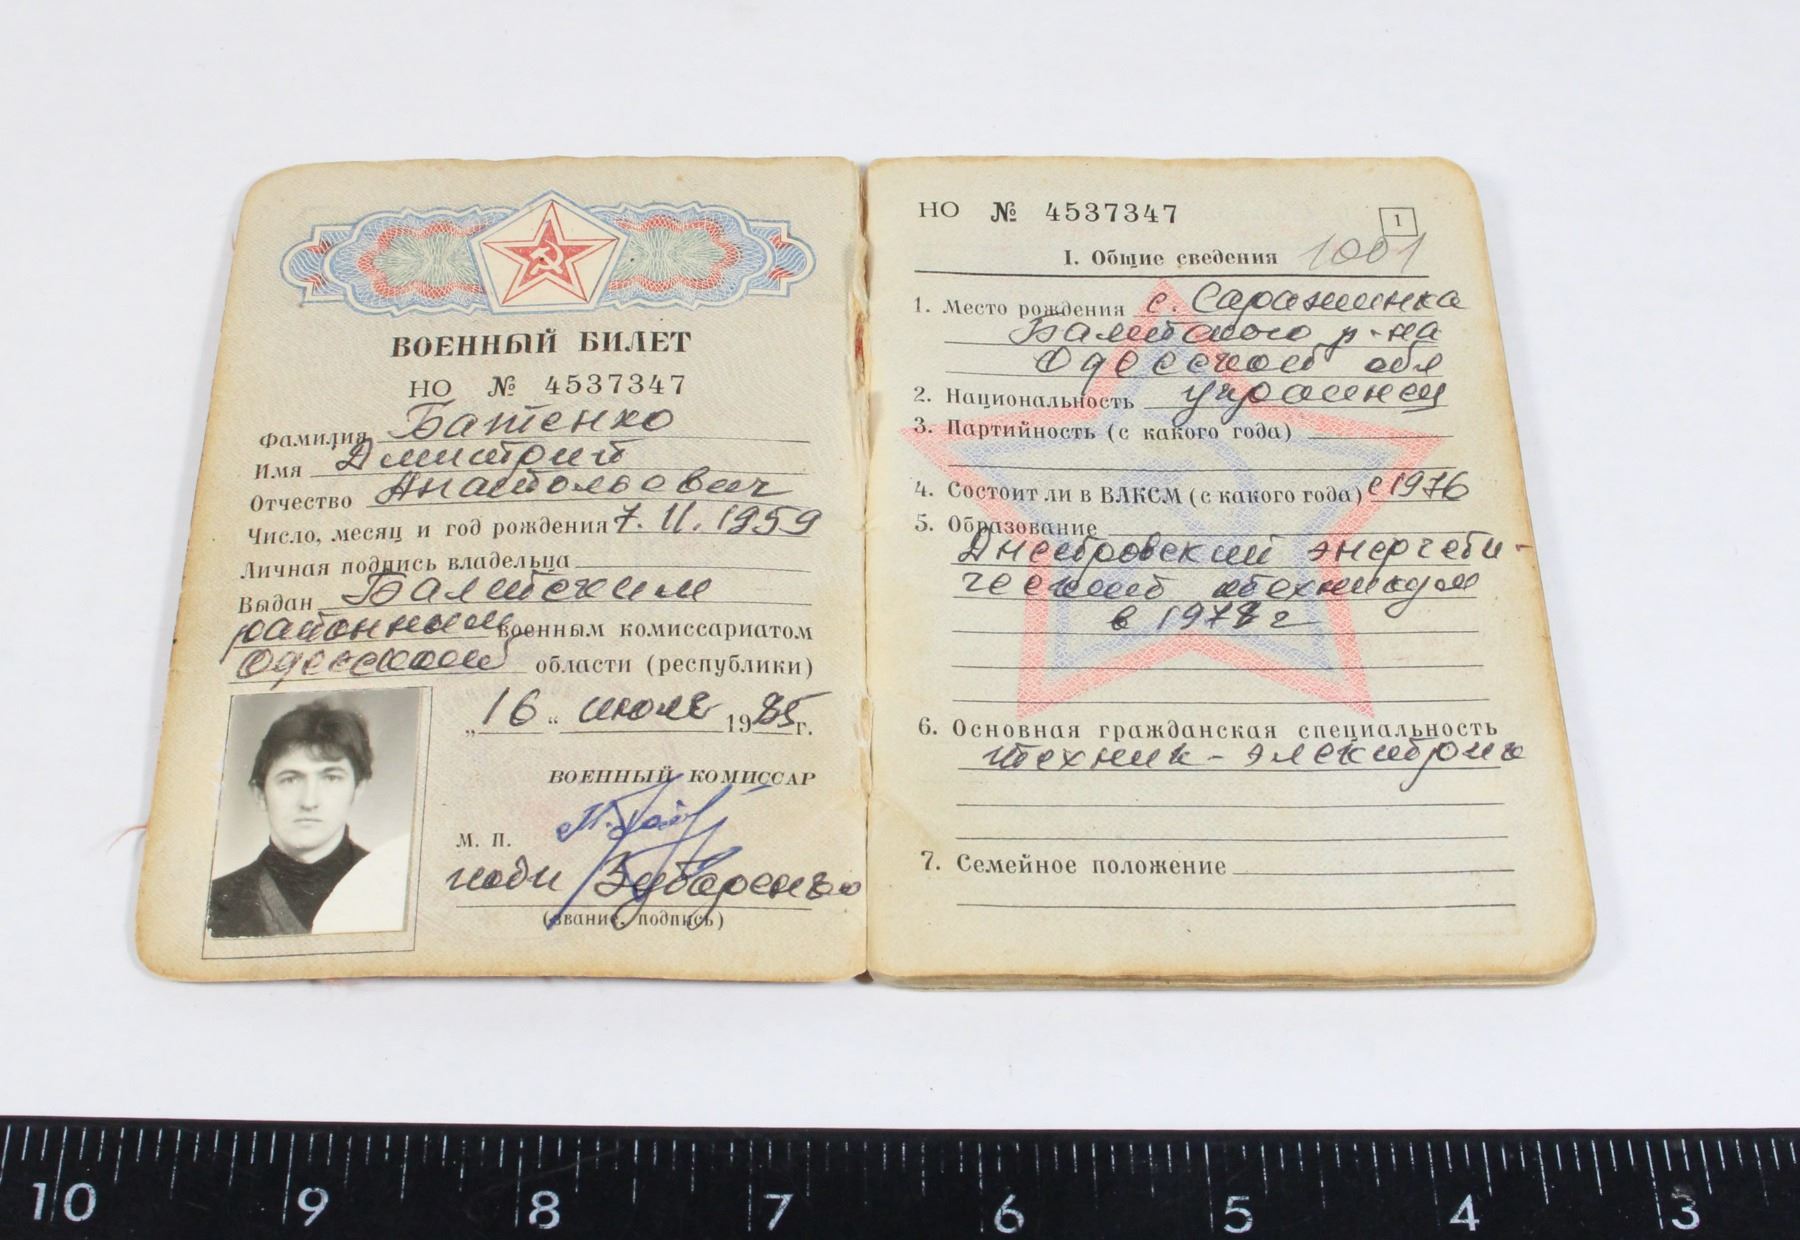 ВОЕННЫЙ БИЛЕТ
НО № 4537347
Фамилия Батенко
Имя Дмитрий
Отчество Анатольевич
Число, месяц и год рождения 7. 11. 1959
Личная подпись владельца
Выдан Балтским
районным военным комиссариатом
Одесской области (республики)
„16“ июля 1985 г.
ВОЕННЫЙ КОМИССАР
М. П.
(звание, подпись)
НО № 4537347
1
I. Общие сведения 1001
1. Место рождения с. Саражинка
Балтского р-на
Одесской обл
2. Национальность украинец
3. Партийность (с какого года)
4. Состоит ли в ВЛКСМ (с какого года) с 1976
5. Образование
Днепровский энергети-
ческий техникум
в 1978 г
6. Основная гражданская специальность
техник-электрик
7. Семейное положение
10 9 8 7 6 5 4 3